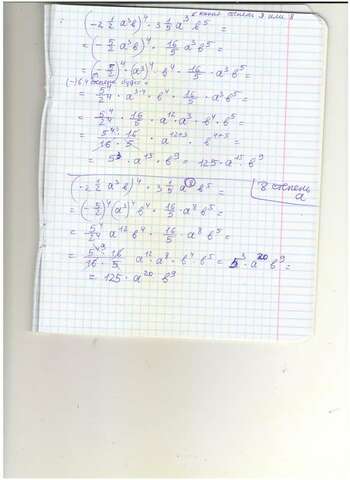 в какой степени 3 или 8
(-2 1/2 a³b)⁴ · 3 1/5 a³b⁵ =
= (-5/2 a³b)⁴ · 16/5 a³b⁵ =
= (-5/2)⁴ · (a³)⁴ · b⁴ · 16/5 · a³b⁵ =
= 5⁴/2⁴ · a³·⁴ · b⁴ · 16/5 · a³b⁵ =
= 5⁴/2⁴ · 16/5 · a¹² · a³ · b⁴ · b⁵ =
= 5⁴ · 16/16 · 5 · a¹²⁺³ · b⁴⁺⁵ =
= 5³ · a¹⁵ · b⁹ = 125 · a¹⁵ · b⁹
(-2 1/2 a³b)⁴ · 3 1/5 a⁸b⁵ =
8 степень a
= (-5/2)⁴ (a³)⁴ b⁴ · 16/5 · a⁸b⁵ =
= 5⁴/2⁴ a¹² b⁴ · 16/5 · a⁸b⁵ =
= 5⁴ · 16/16 · 5 a¹² · a⁸ · b⁴ · b⁵ = 5³ · a²⁰ b⁹ =
= 125 · a²⁰ b⁹